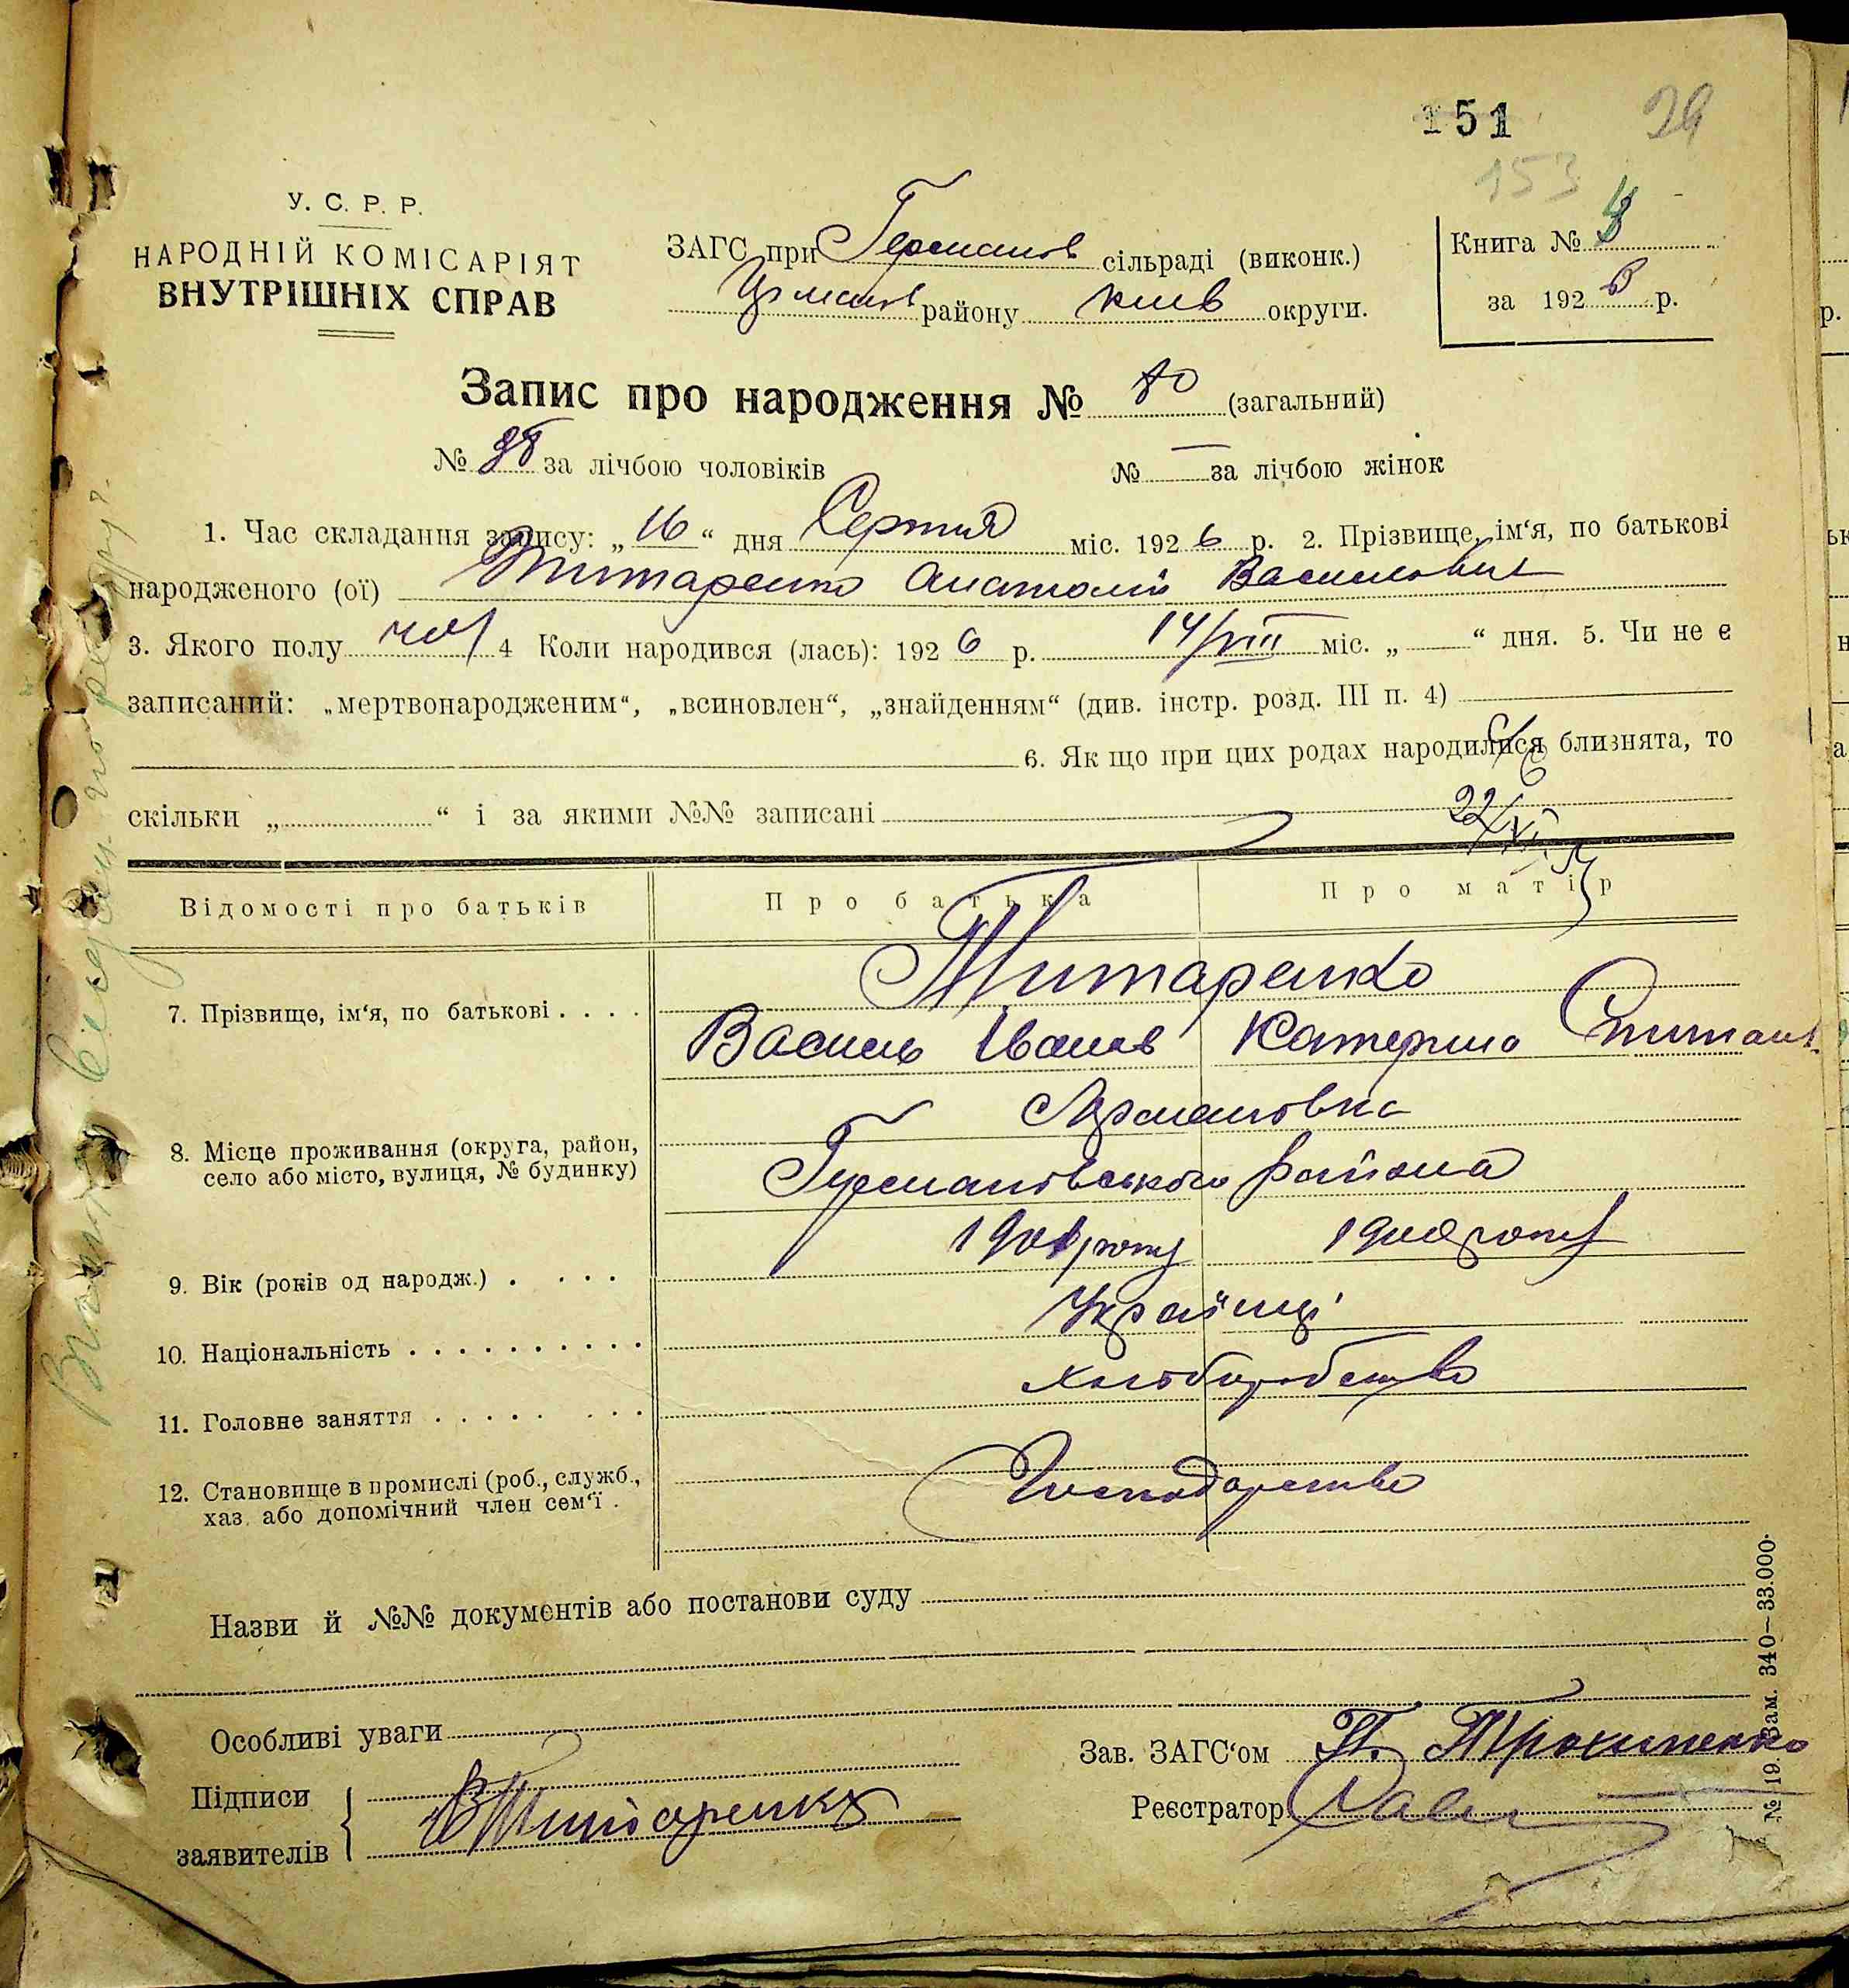 151 29
153
У. С. Р. Р.
НАРОДНІЙ КОМІСАРІЯТ
ВНУТРІШНІХ СПРАВ
ЗАГС при Германов сільраді (виконк.)
району київ округи.
Книга №
за 1926 р.
Запис про народження № 80 (загальний)
№ 38 за лічбою чоловіків № — за лічбою жінок
1. Час складання запису: „16“ дня Серпня міс. 1926 р. 2. Прізвище, ім‘я, по батькові
народженого (ої) Титаренко Анатолій Васильович
3. Якого полу чол 4 Коли народився (лась): 1926 р. 14/VIII міс. „—“ дня. 5. Чи не є
записаний: „мертвонародженим“, „всиновлен“, „знайденням“ (див. інстр. розд. III п. 4)
6. Як що при цих родах народилися близнята, то
скільки „ “ і за якими №№ записані
Відомості про батьків Про батька Про матір
7. Прізвище, ім‘я, по батькові . . . . Титаренко
Василь Іванов Катерина
8. Місце проживання (округа, район,
село або місто, вулиця, № будинку)
Германовського района
9. Вік (років од народж.) . . . . 1901 року 1900 року
10. Національність . . . . . . . . . . Українці
11. Головне заняття . . . . . . . . хліборобство
12. Становище в промислі (роб., служб.,
хаз. або допомічний член сем‘ї . Господарство
Назви й №№ документів або постанови суду
Особливі уваги
Зав. ЗАГС‘ом П. Трохименко
Підписи
заявителів В Титаренко
Реєстратор
№ 19 Зам. 340—33.000.